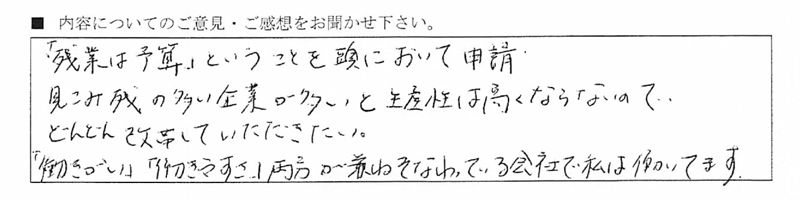 ■ 内容についてのご意見・ご感想をお聞かせ下さい。
「残業は予算」ということを頭において申請
見こみ残の多い企業が多いと生産性は高くならないので、
どんどん改革していただきたい。
「働きがい」「働きやすさ」両方が兼ねそなわっている会社で私は働いてます